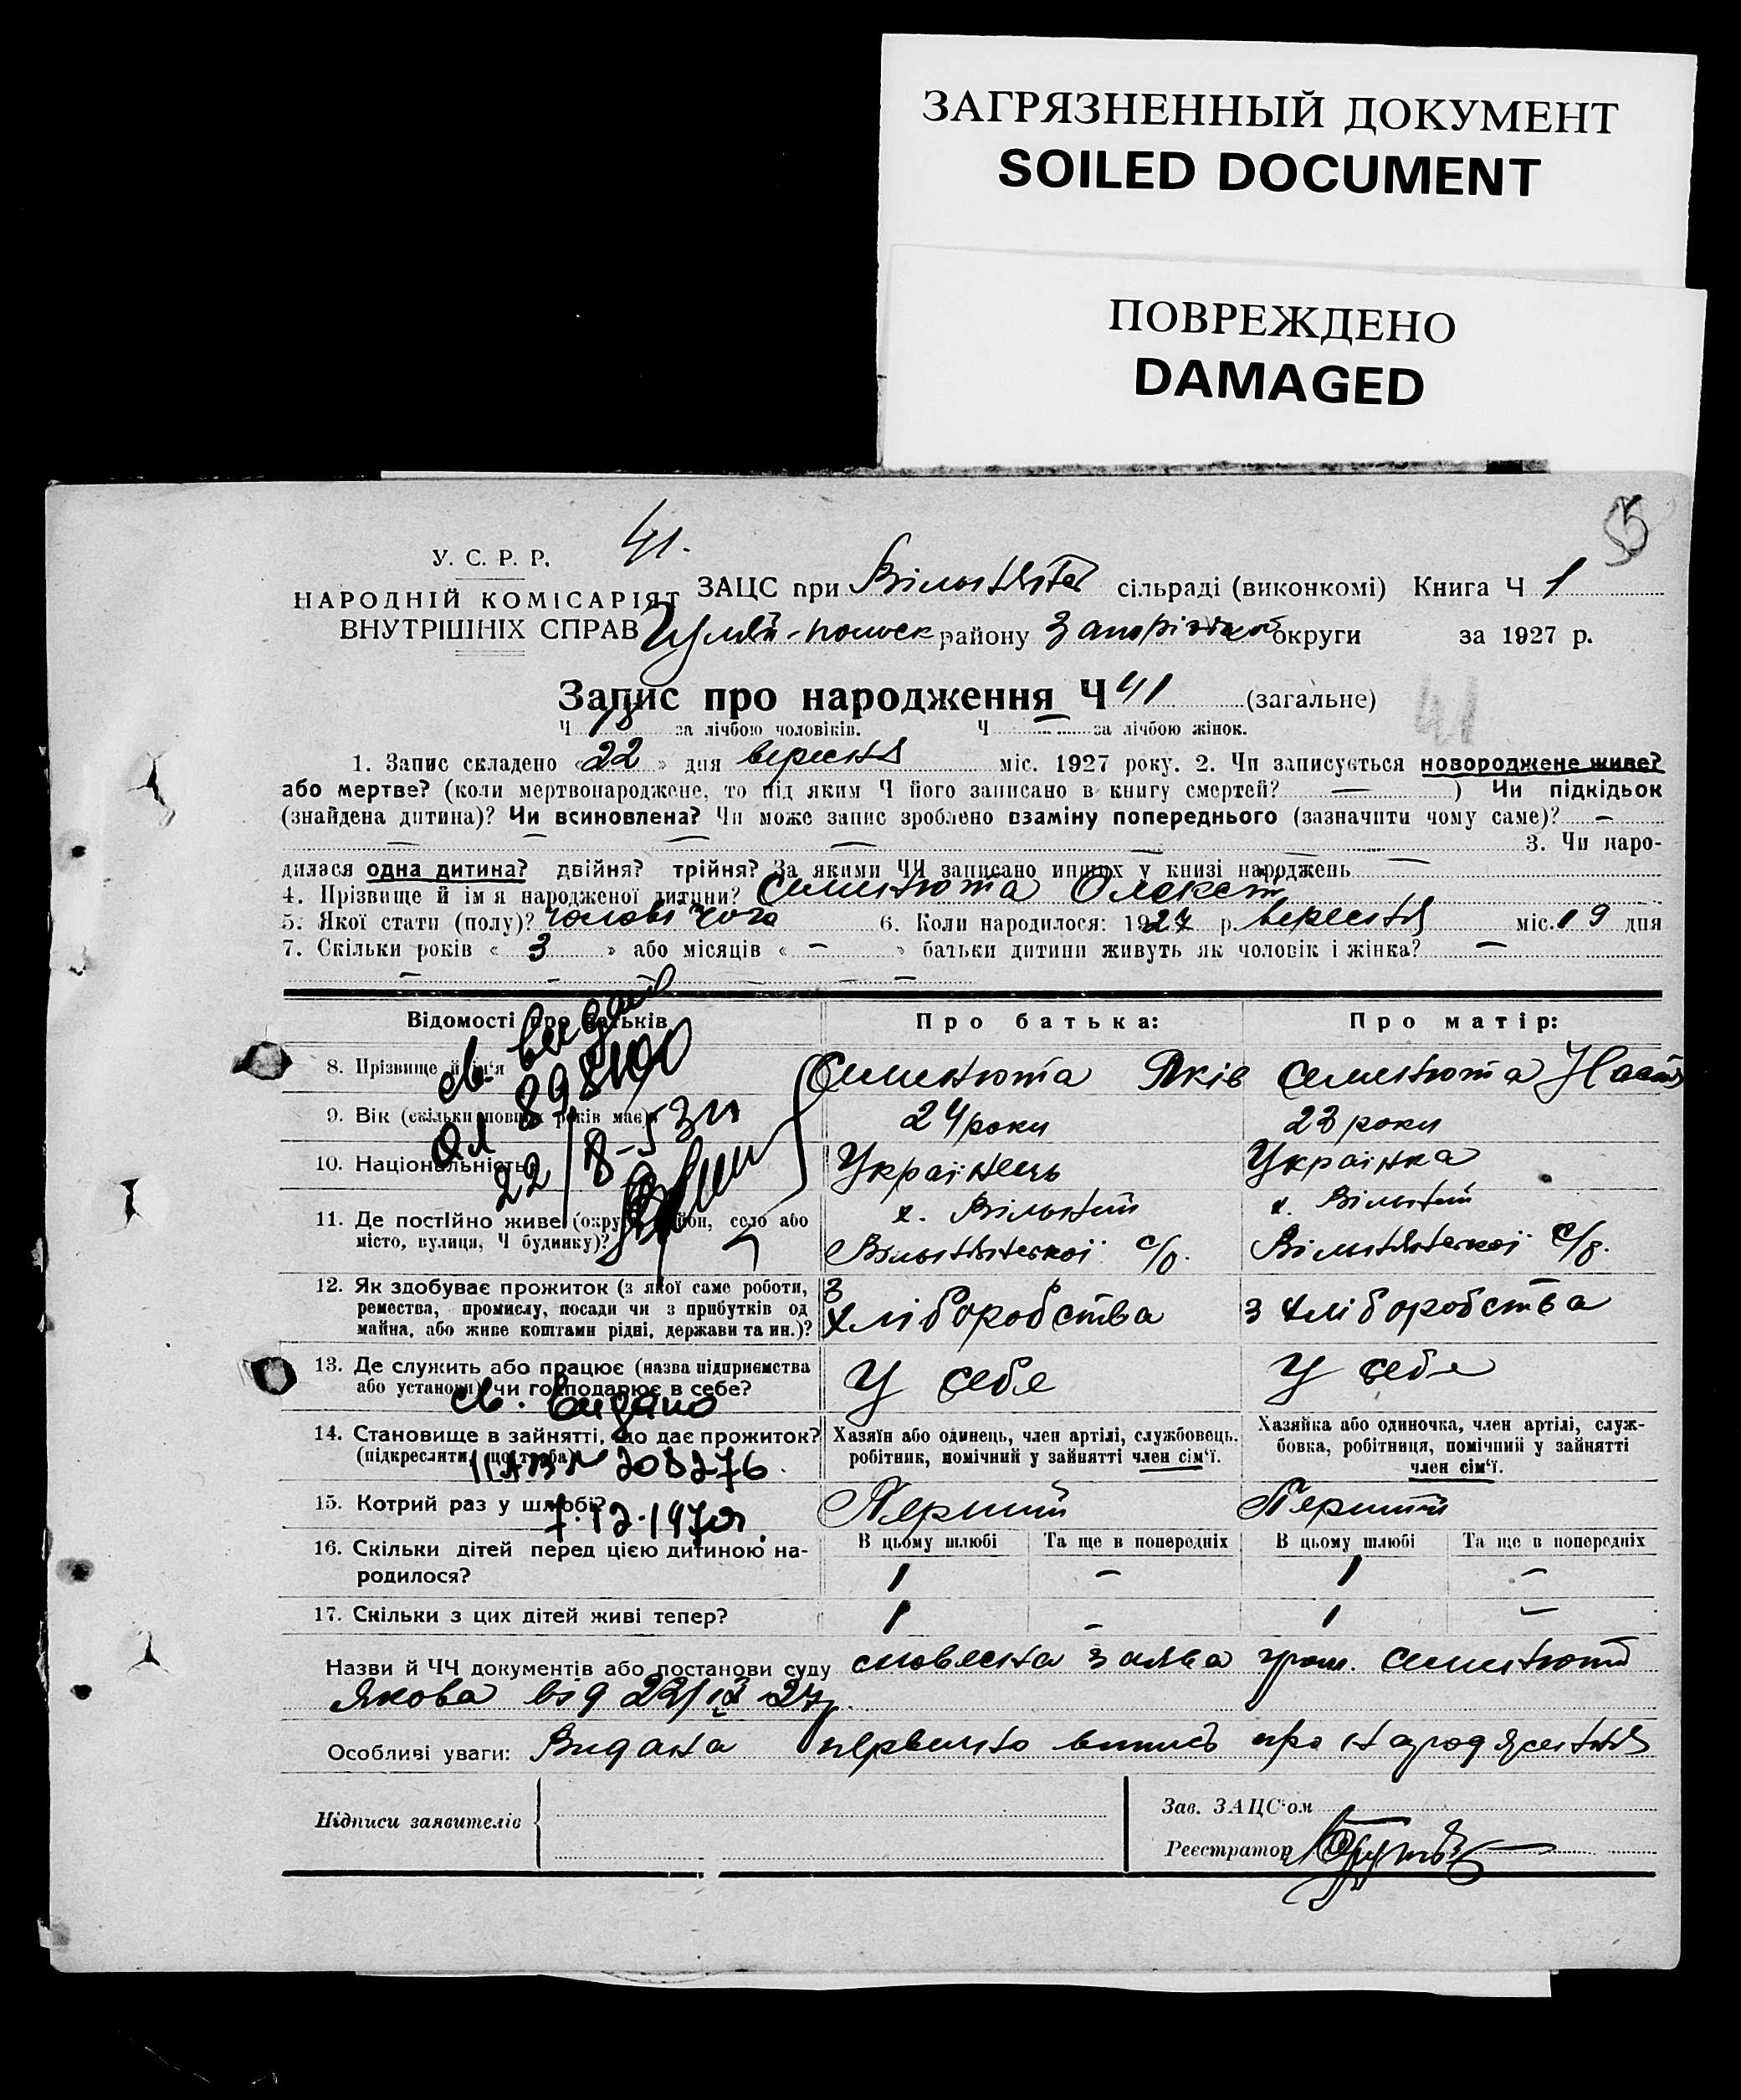 ЗАГРЯЗНЕННЫЙ ДОКУМЕНТ
SOILED DOCUMENT
ПОВРЕЖДЕНО
DAMAGED
41.
У. С. Р. Р.
НАРОДНІЙ КОМІСАРІЯТ
ВНУТРІШНІХ СПРАВ
ЗАЦС при сільраді (виконкомі) Книга Ч 1
Гуляй-польск району Запорізької округи за 1927 р.
Запис про народження Ч 41 (загальне)
41
Ч 18 за лічбою чоловіків. Ч — за лічбою жінок.
1. Запис складено « 22 » дня вересня міс. 1927 року. 2. Чи записується новороджене живе?
або мертве? (коли мертвонароджене, то під яким Ч його записано в книгу смертей? — ) Чи підкідьок
(знайдена дитина)? Чи всиновлена? Чи може запис зроблено взаміну попереднього (зазначити чому саме)? —
— — — — — 3. Чи наро-
дилася одна дитина? двійня? трійня? За якими ЧЧ записано инших у книзі народжень —
4. Прізвище й ім'я народженої дитини? Семенюта Олексій
5. Якої стати (полу)? чоловічого 6. Коли народилося: 1927 р. вересня міс. 19 дня
7. Скільки років « 3 » або місяців « — » батьки дитини живуть як чоловік і жінка? —
— — — —
Відомості про батьків Про батька: Про матір:
св. видано
898100
22/8-53г
8. Прізвище й ім'я Семенюта Яків Семенюта Наст
9. Вік (скільки повних років має) 24 роки 23 роки
10. Національність Українець Українка
11. Де постійно живе (округа, район, село або
місто, вулиця, Ч будинку)?
х. Вільний х. Вільний
с/р. с/р.
12. Як здобуває прожиток (з якої саме роботи,
ремества, промислу, посади чи з прибутків од
майна, або живе коштами рідні, держави та ин.)?
з хліборобства з хліборобства
13. Де служить або працює (назва підприємства
або установи) чи господарює в себе?
У себе У себе
св. видано
14. Становище в зайнятті, що дає прожиток?
(підкреслити, що треба)
Хазяїн або одинець, член артілі, службовець,
робітник, помічний у зайнятті член сім'ї.
Хазяйка або одиночка, член артілі, служ-
бовка, робітниця, помічний у зайнятті
член сім'ї.
№ 208276.
15. Котрий раз у шлюбі? Перший Перший
7.12.1970г.
16. Скільки дітей перед цією дитиною на-
родилося?
В цьому шлюбі Та ще в попередніх В цьому шлюбі Та ще в попередніх
1 — 1 —
17. Скільки з цих дітей живі тепер? 1 — 1 —
Назви й ЧЧ документів або постанови суду словесна заява гром. Семенюти
Якова від 22/IX 27р.
Особливі уваги: Видана первісно випись про народження
Підписи заявителів
Зав. ЗАЦС'ом
Реєстратор